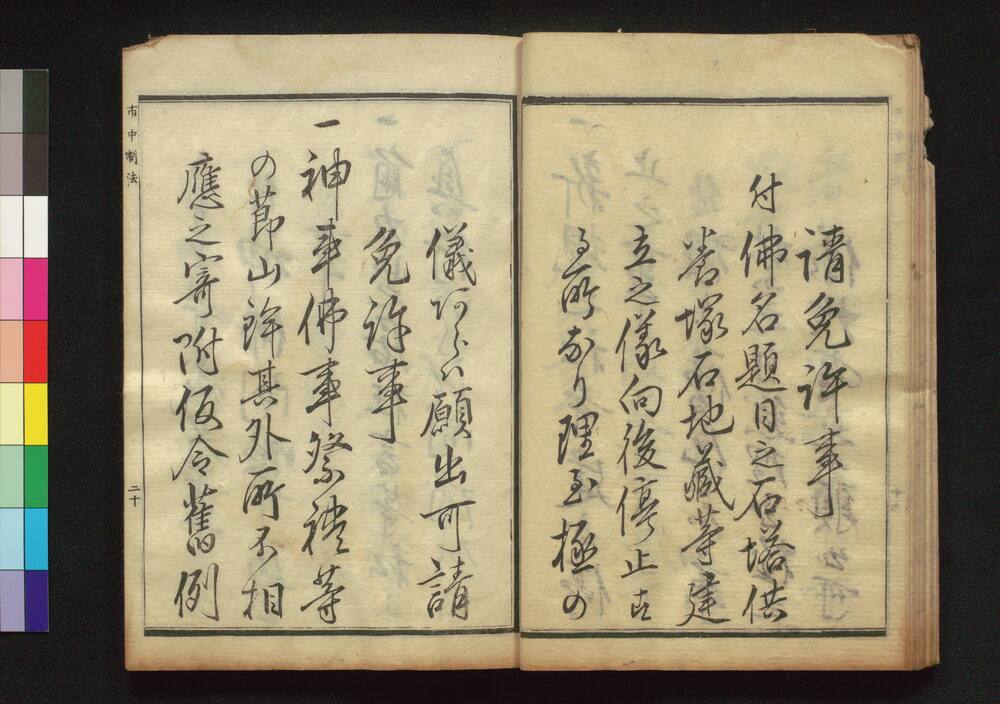 請免許事
付佛名題目之石塔供
養塚石地藏等建
立之儀向後停止
所あり理至極の
儀あらハ願出可請
免許事
一神事佛事祭禮等
の節山鉾其外所不相
應之寄附仮令舊例
市中制法
二十